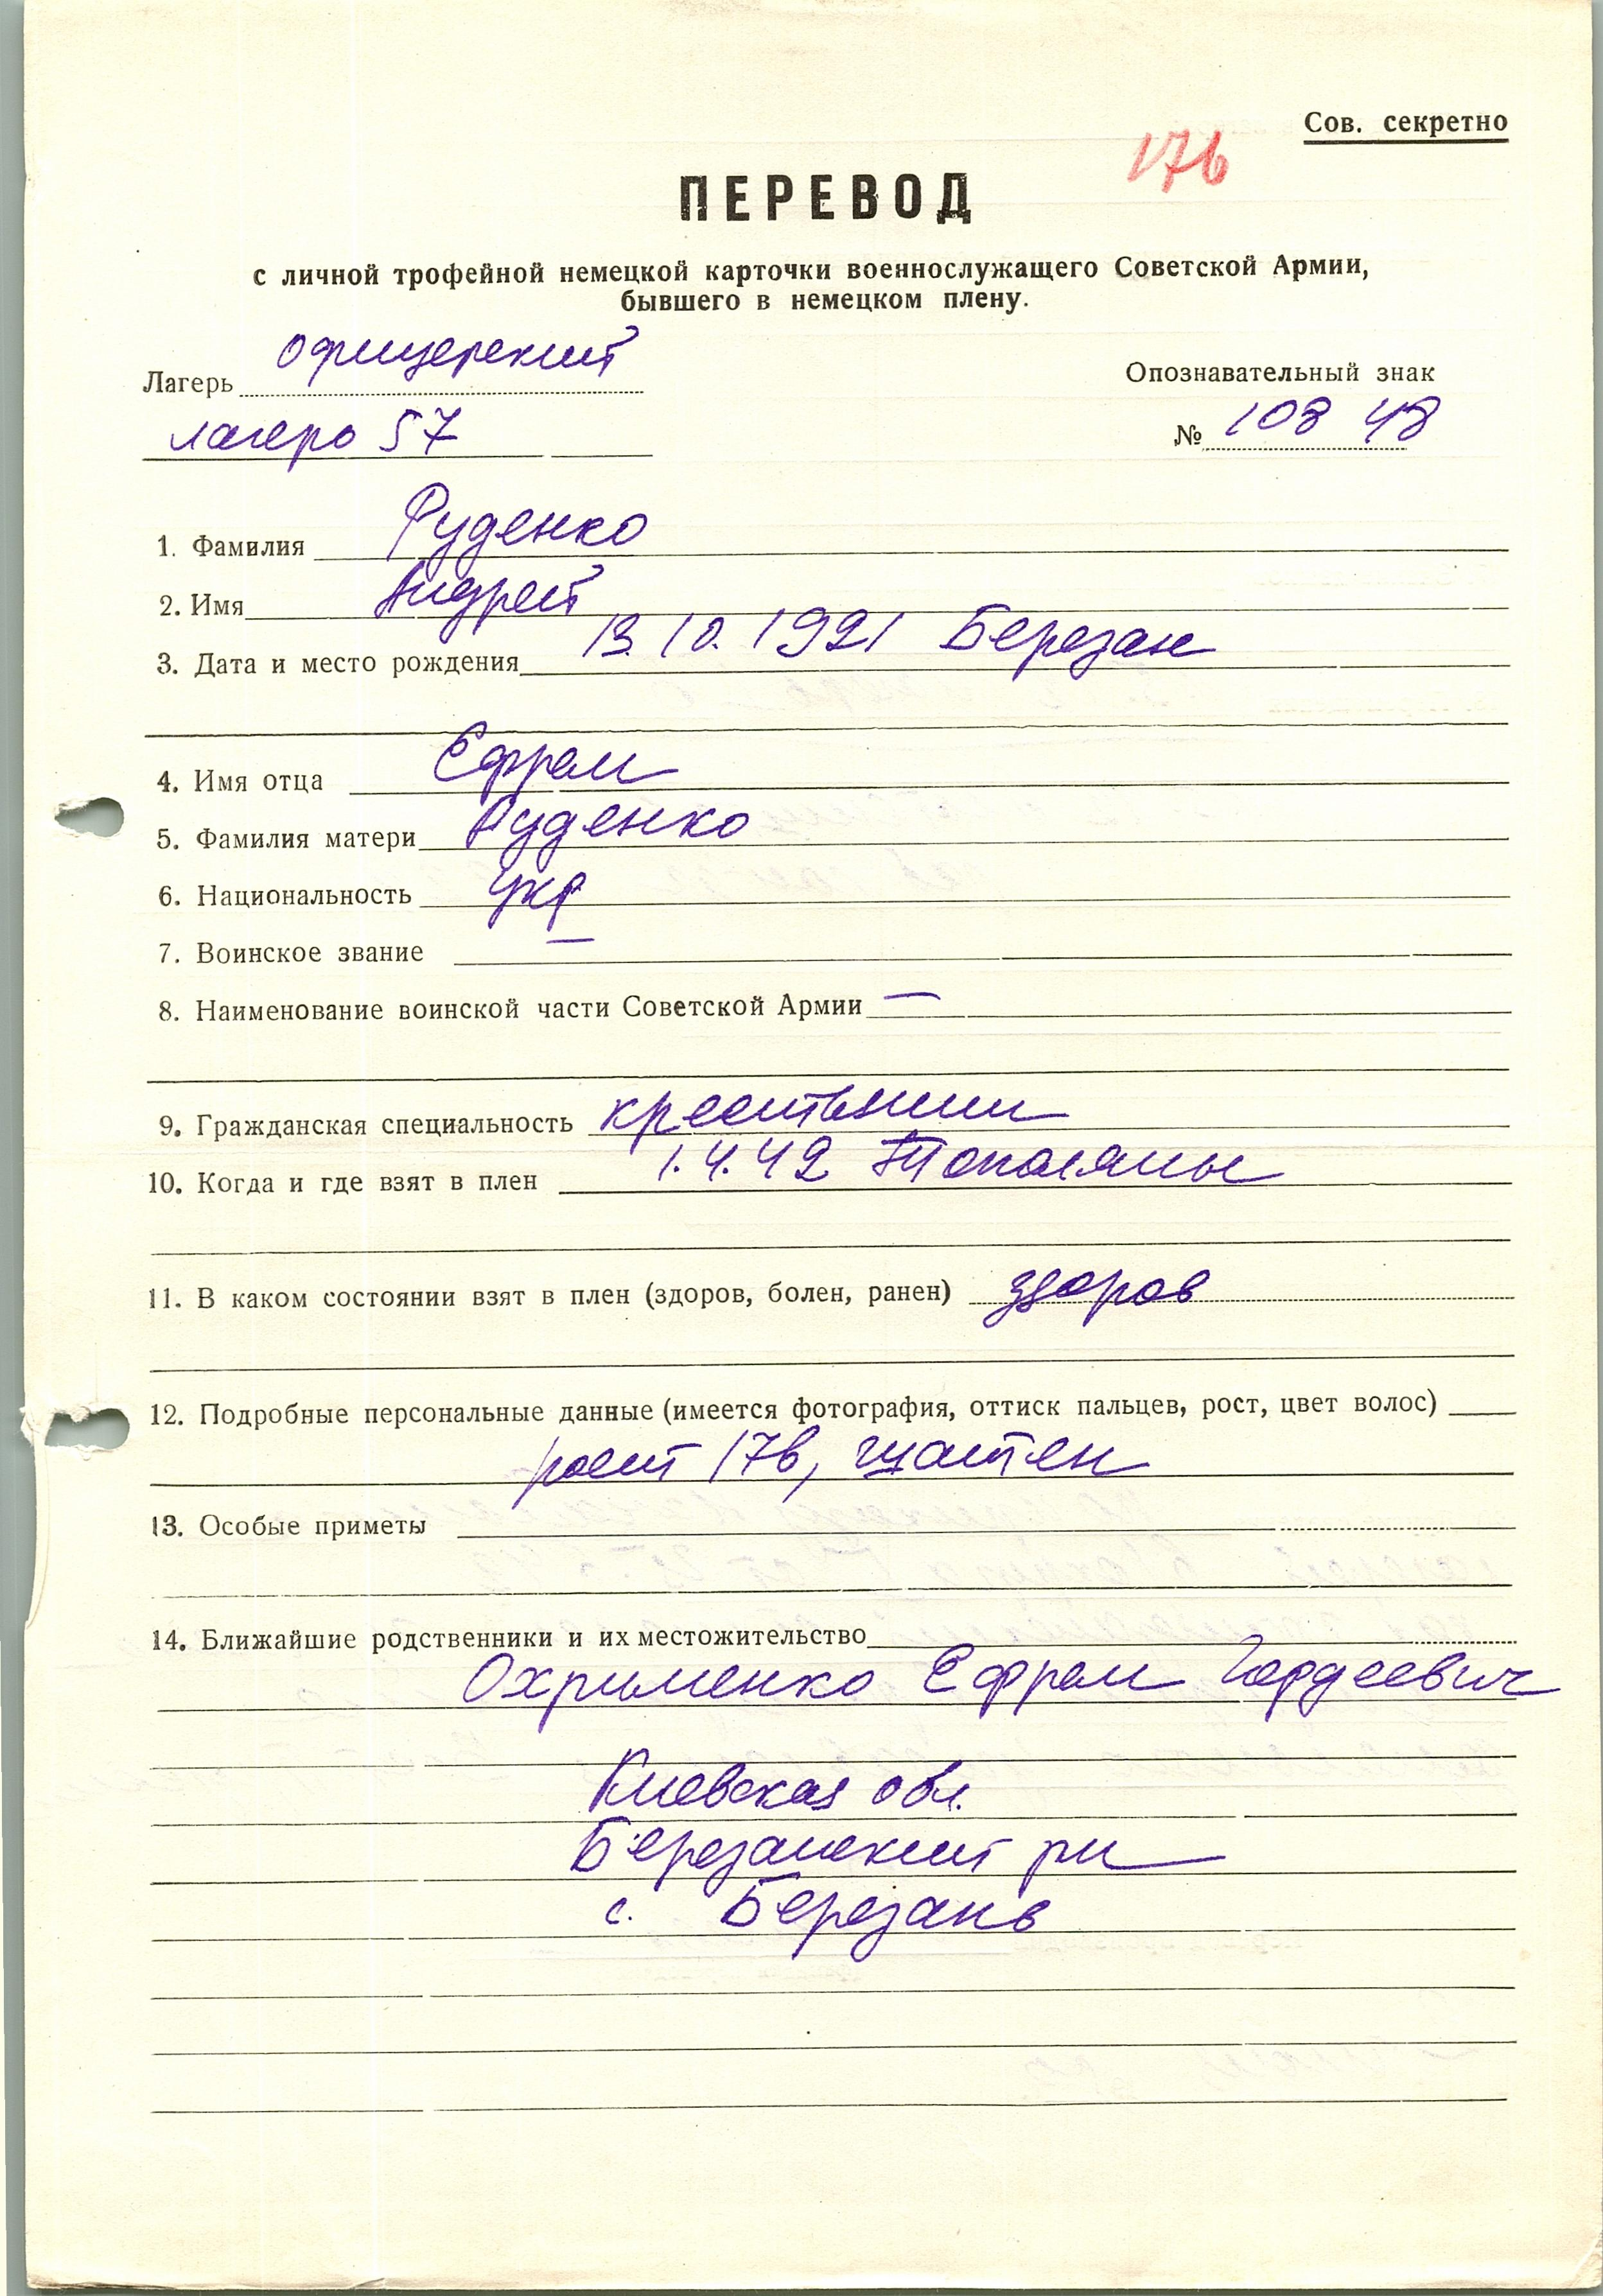 Сов. секретно
176
ПЕРЕВОД
с личной трофейной немецкой карточки военнослужащего Советской Армии,
бывшего в немецком плену.
Лагерь офицерский
лагерь 57
Опознавательный знак
№ 108 48
1. Фамилия Руденко
2. Имя Андрей
3. Дата и место рождения 13.10.1921 Березан
4. Имя отца Ефрем
5. Фамилия матери Руденко
6. Национальность укр
7. Воинское звание —
8. Наименование воинской части Советской Армии —
9. Гражданская специальность крестьянин
10. Когда и где взят в плен 1.4.42
11. В каком состоянии взят в плен (здоров, болен, ранен) здоров
12. Подробные персональные данные (имеется фотография, оттиск пальцев, рост, цвет волос)
рост 176,
13. Особые приметы
14. Ближайшие родственники и их местожительство
Охрименко Ефрем Гордеевич
Киевская обл.
Березанский рн
с. Березань